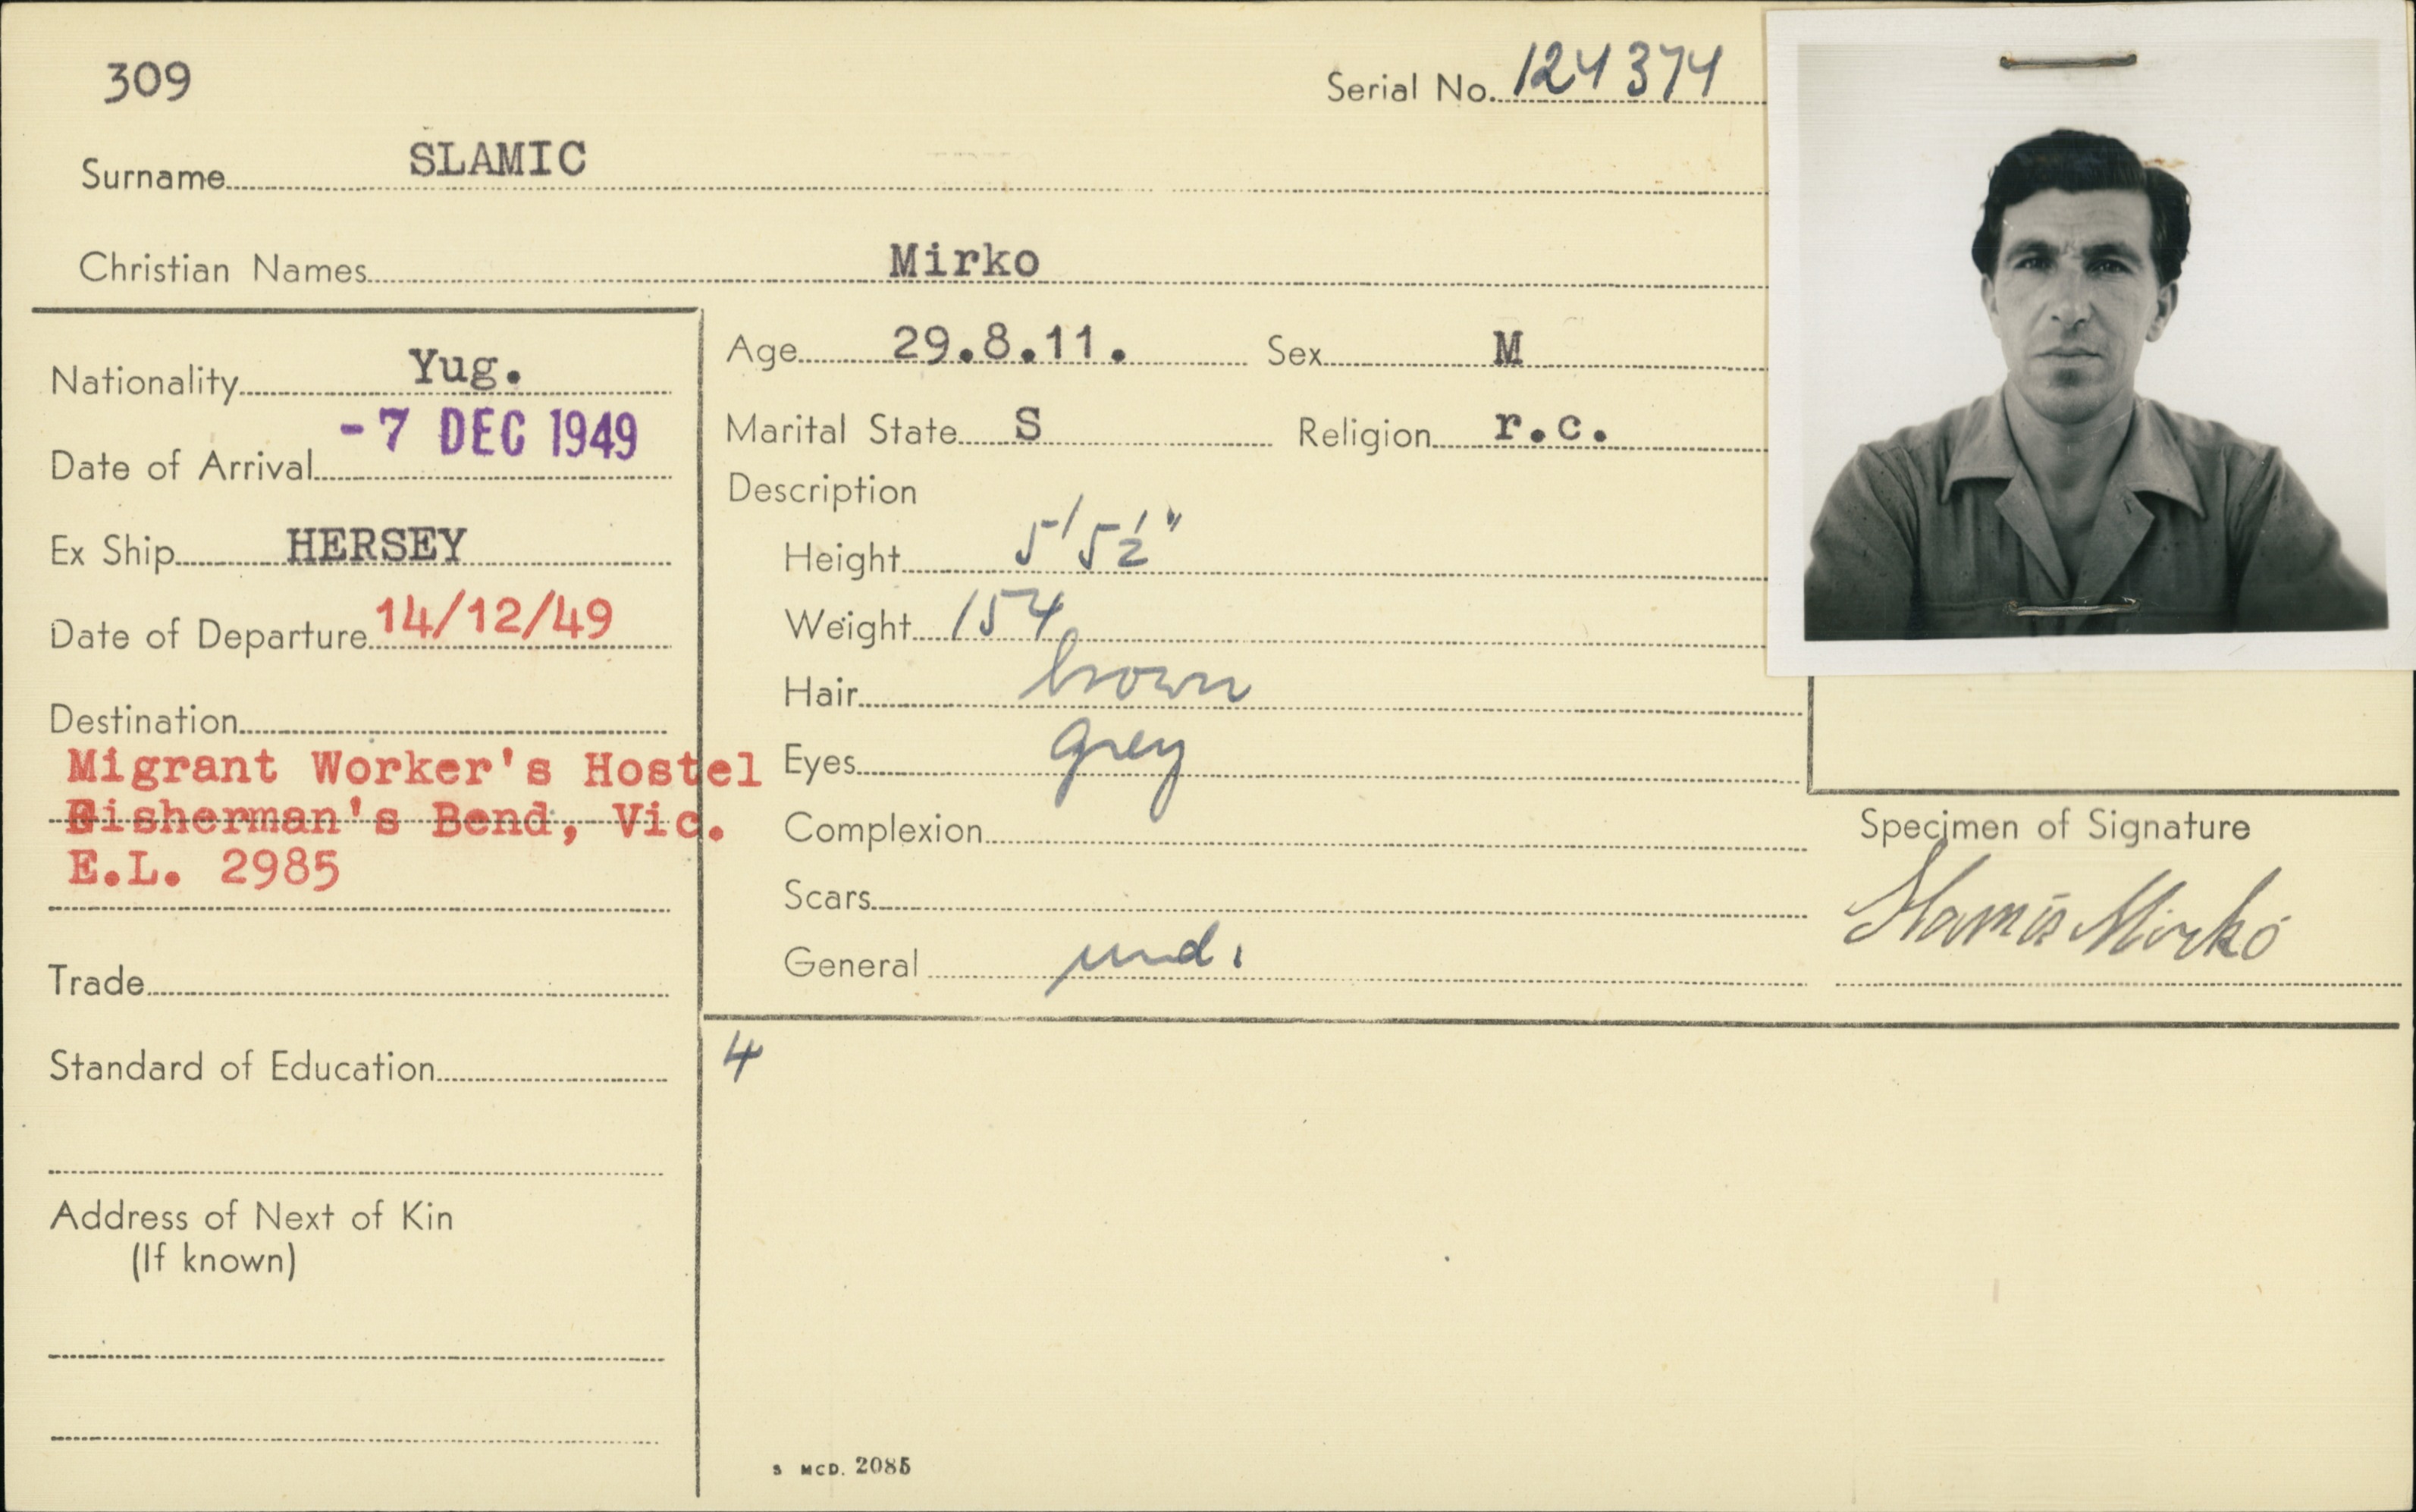 309
Serial No. 124374
Surname SLAMIC
Christian Names Mirko
Nationality Yug.
Date of Arrival -7 DEC 1949
Ex Ship HERSEY
Date of Departure 14/12/49
Destination
Migrant Worker's Hostel
Fisherman's Bend, Vic.
E.L. 2985
Trade
Standard of Education
Address of Next of Kin
(If known)
Age 29.8.11. Sex M
Marital State S Religion r.c.
Description
Height 5'5½"
Weight 154
Hair brown
Eyes grey
Complexion
Scars
General und.
Specimen of Signature
Slamic Mirko
4
S MCD. 2085